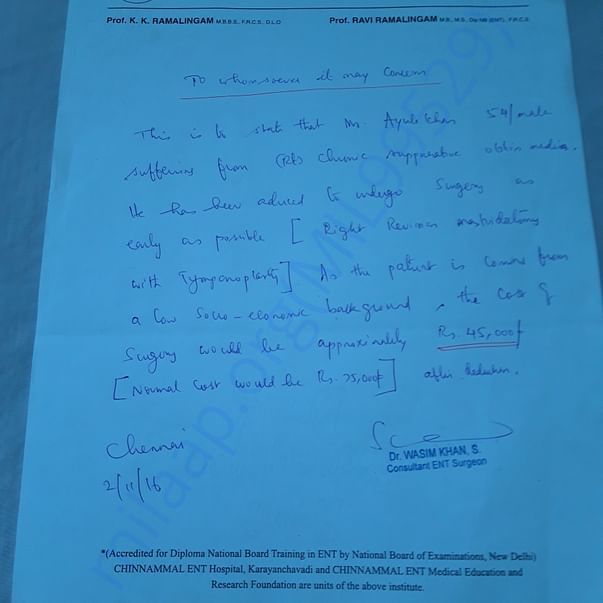 Prof. K. K. RAMALINGAM M.B.B.S., F.R.C.S., D.L.O Prof. RAVI RAMALINGAM M.B., M.S., Dip NB (ENT)., F.R.C.S.
To whomsoever it may Concern
This is to state that Mr. Ayub Khan 54/male
suffering from (Rt) Chronic suppurative otitis media.
He has been advised to undergo Surgery as
early as possible [ Right Revision mastoidectomy
with Tympanoplasty ] As the patient is coming from
a low socio-economic background, the cost of
Surgery would be approximately Rs. 45,000/-
[ Normal Cost would be Rs. 75,000/- ] after deduction.
Chennai
2/11/16
Dr. WASIM KHAN, S.
Consultant ENT Surgeon
*(Accredited for Diploma National Board Training in ENT by National Board of Examinations, New Delhi)
CHINNAMMAL ENT Hospital, Karayanchavadi and CHINNAMMAL ENT Medical Education and
Research Foundation are units of the above institute.